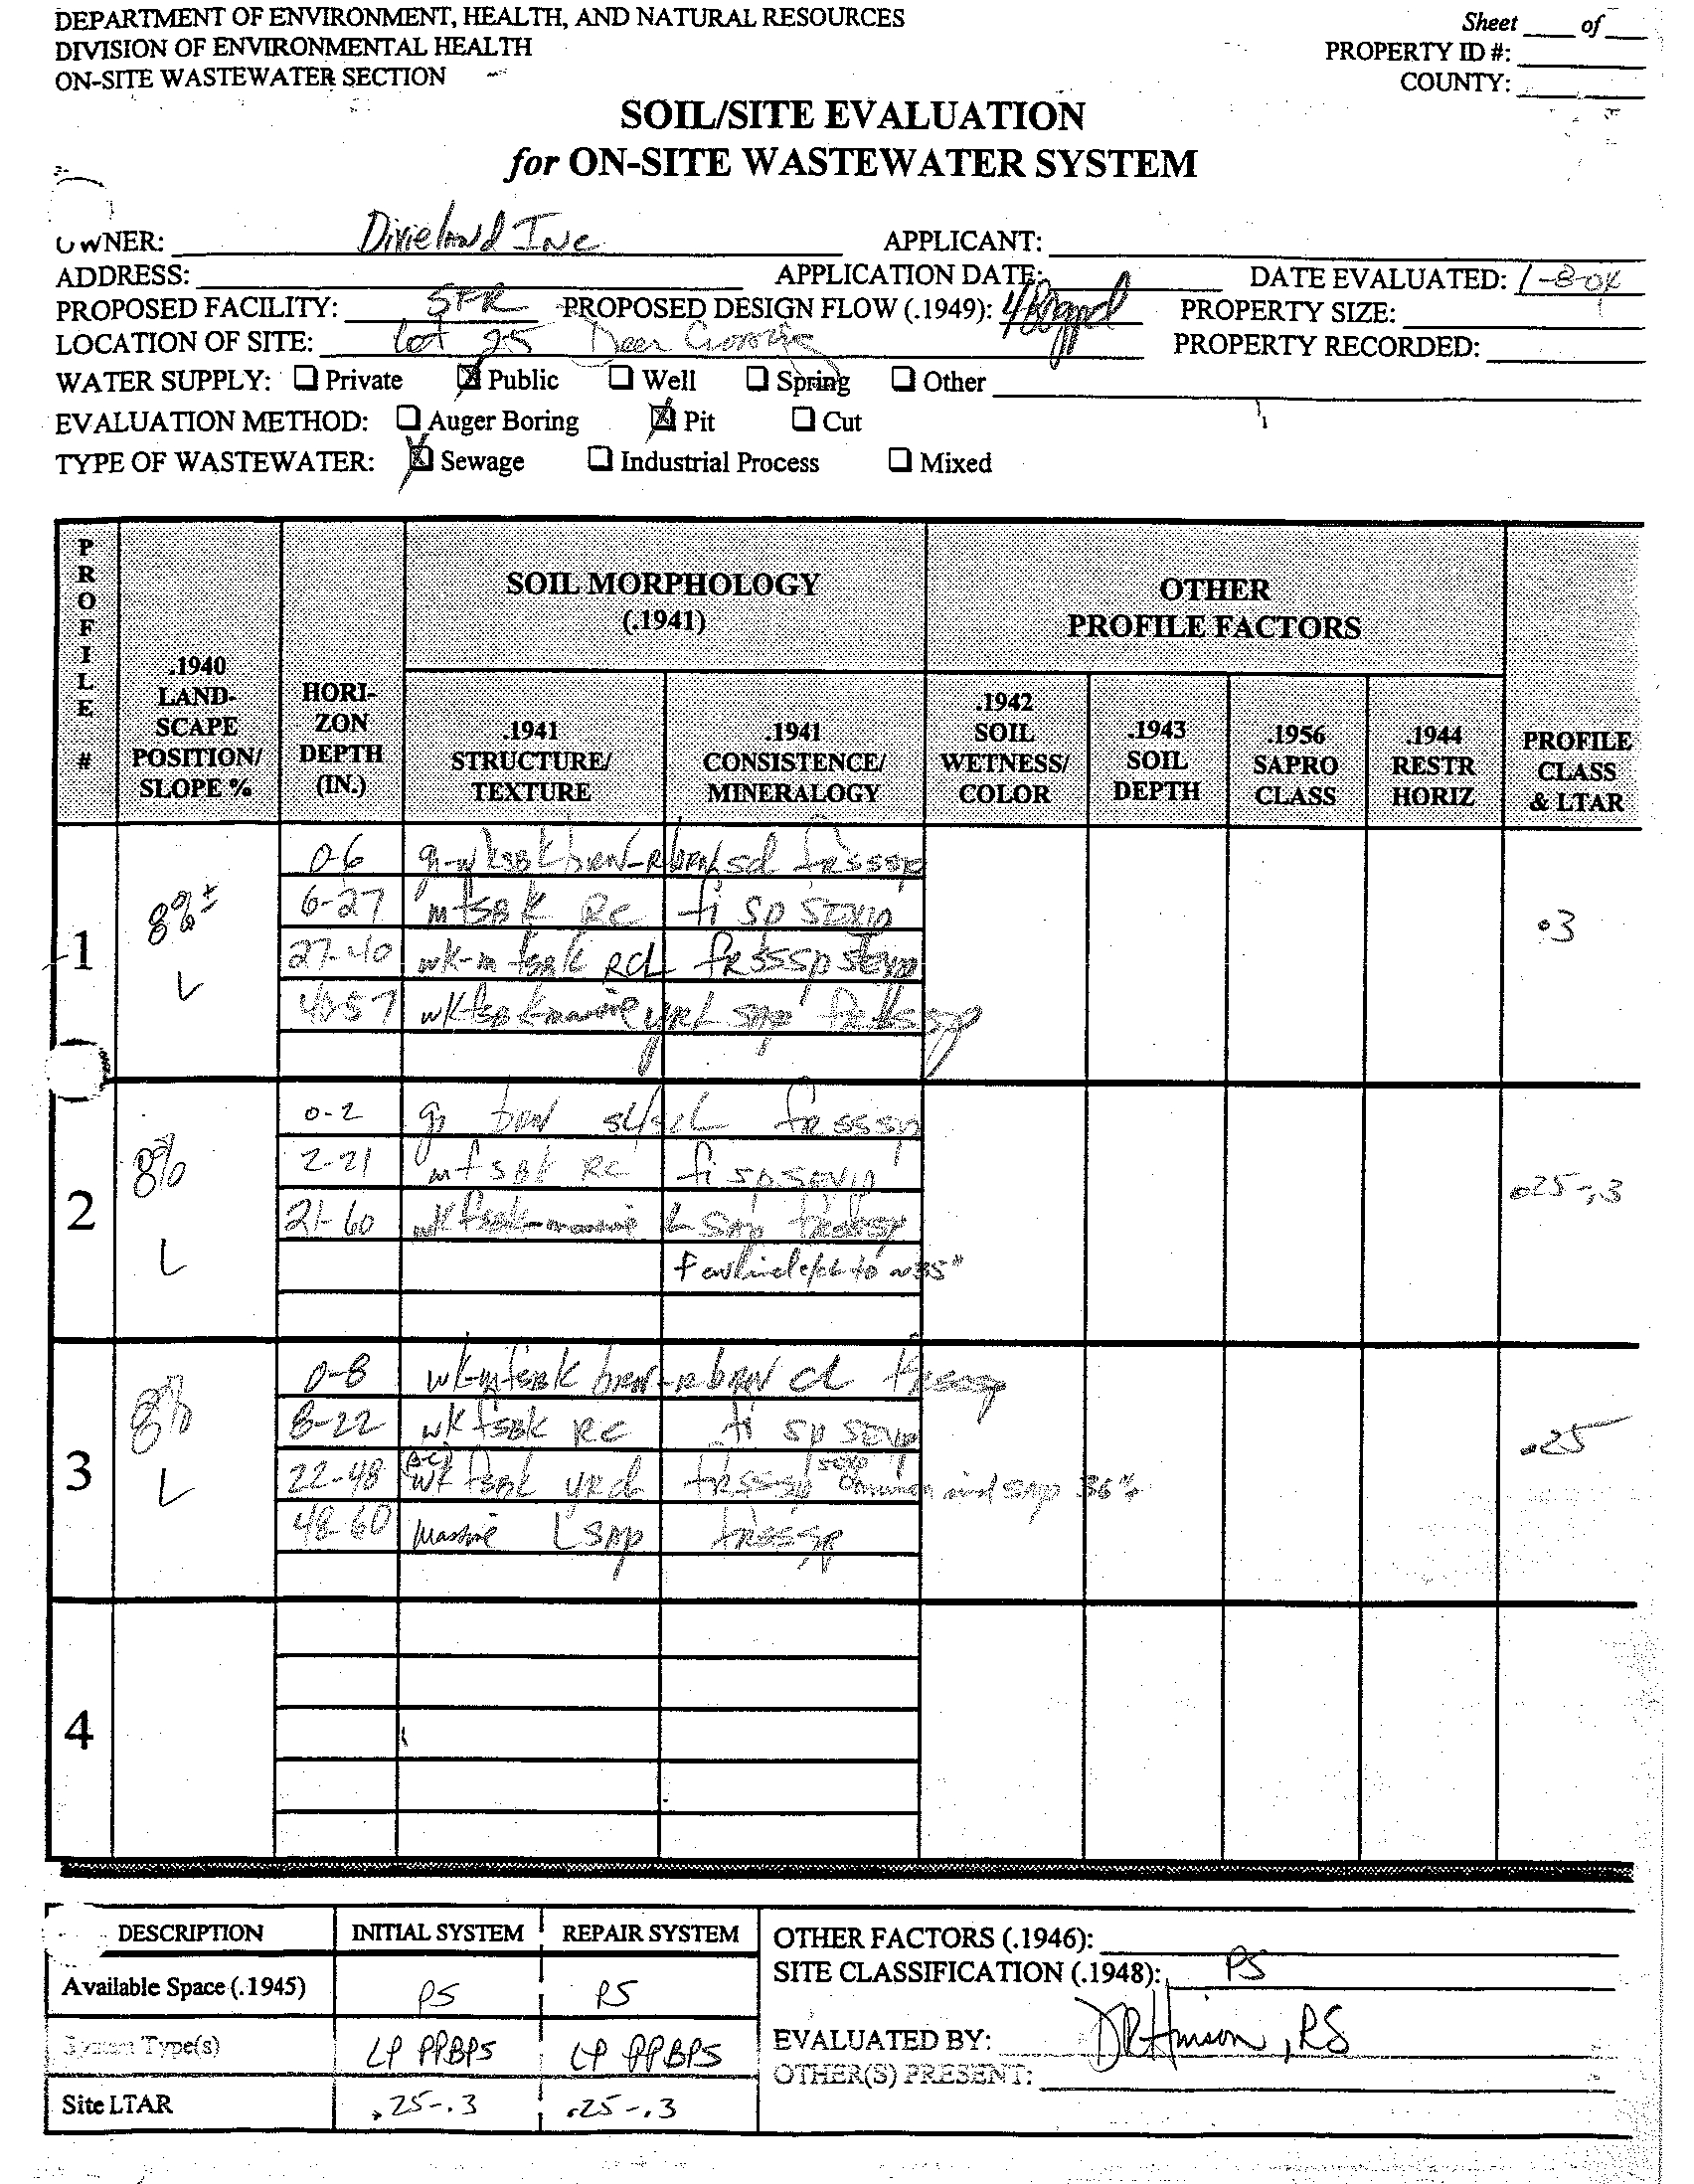 DEPARTMENT OF ENVIRONMENT, HEALTH, AND NATURAL RESOURCES
DIVISION OF ENVIRONMENTAL HEALTH
ON-SITE WASTEWATER SECTION
Sheet ____ of ____
PROPERTY ID #:
COUNTY:
SOIL/SITE EVALUATION
for ON-SITE WASTEWATER SYSTEM
OWNER: Dixieland Inc APPLICANT:
ADDRESS: APPLICATION DATE: DATE EVALUATED: 1-8-04
PROPOSED FACILITY: SFR PROPOSED DESIGN FLOW (.1949): 480gpd PROPERTY SIZE:
LOCATION OF SITE: Lot 25 Deer Crossing PROPERTY RECORDED:
WATER SUPPLY: Private Public Well Spring Other
EVALUATION METHOD: Auger Boring Pit Cut
TYPE OF WASTEWATER: Sewage Industrial Process Mixed
PROFILE #
.1940 LAND-SCAPE POSITION/ SLOPE %
HORI-ZON DEPTH (IN.)
SOIL MORPHOLOGY (.1941)
.1941 STRUCTURE/ TEXTURE
.1941 CONSISTENCE/ MINERALOGY
OTHER PROFILE FACTORS
.1942 SOIL WETNESS/ COLOR
.1943 SOIL DEPTH
.1956 SAPRO CLASS
.1944 RESTR HORIZ
PROFILE CLASS & LTAR
1 8%± L .3
0-6 gr-wksbk brn-rbrn scl frsssp
6-27 mfsbk RC fi sp sexp
27-40 wk-mfsbk RCL frsssp sexp
40-57 wkfsbk-massive yRL sap frsssp
2 8% L .025-.3
0-2 gr brn sl/scl frsssp
2-21 mfsbk RC fi sp sexp
21-60 wkfsbk-massive L sap frsssp
to ~35"
3 8% L .25
0-8 wk-mfsbk brn-rbrn cl frsssp
8-22 wkfsbk RC fi sp sexp
22-48 wk fsbk yRcl frsssp sexp common sap 36"+
48-60 Massive L sap frsssp
4
DESCRIPTION INITIAL SYSTEM REPAIR SYSTEM
Available Space (.1945) PS PS
System Type(s) LP PPBPS LP PPBPS
Site LTAR .25-.3 .25-.3
OTHER FACTORS (.1946):
SITE CLASSIFICATION (.1948): PS
EVALUATED BY: DR Hinson, RS
OTHER(S) PRESENT: